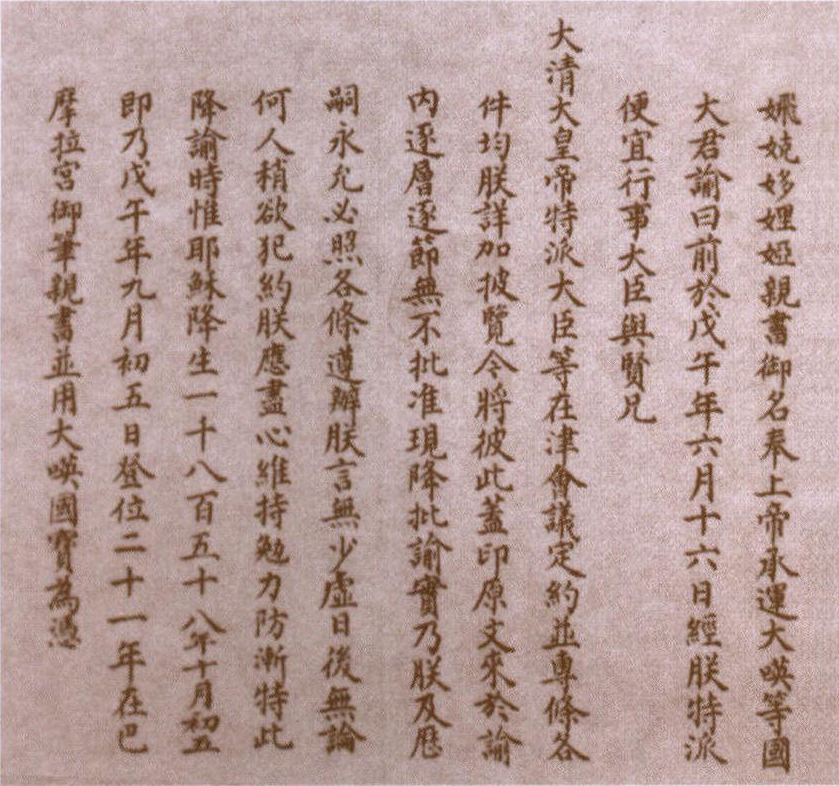 嬎娆姼娌婭親書御名奉上帝承運大㖤等國
大君諭曰前於戊午年六月十六日經朕特派
便宜行事大臣與賢兄
大清大皇帝特派大臣等在津會議定約並專條各
件均朕詳加披覽令將彼此蓋印原文來於諭
內逐層逐節無不批准現降批諭實乃朕及歷
嗣永允必照各條遵辦朕言無少虛日後無論
何人稍欲犯約朕應盡心維持勉力防漸特此
降諭時惟耶穌降生一千八百五十八年十月初五
即乃戊午年九月初五日登位二十一年在巴
摩拉宮御筆親書並用大㖤國寶為憑